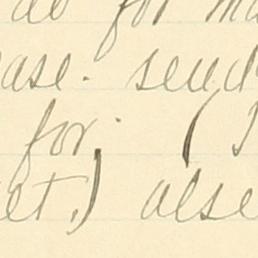 do for
ase. send
for. (
et.) alse